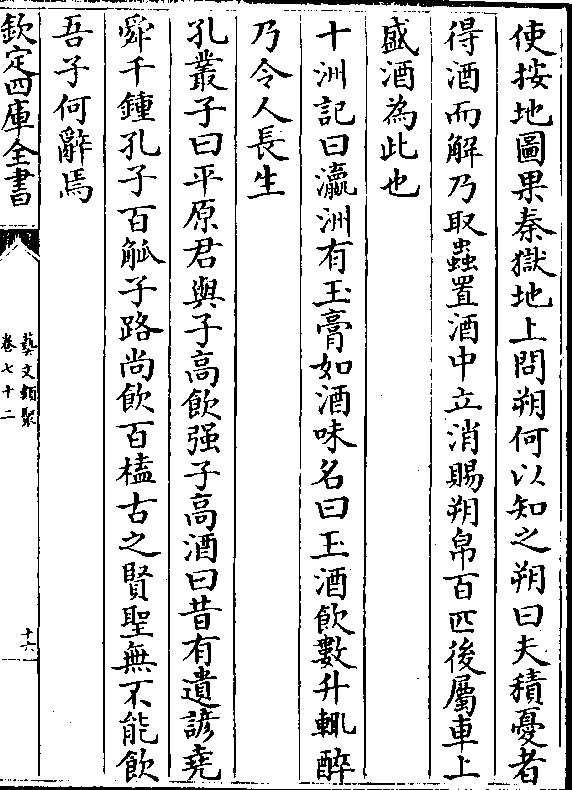 使按地圖果秦獄地上問朔何以知之朔曰夫積憂者
得酒而解乃取蟲置酒中立消賜朔帛百匹後屬車上
盛酒為此也
十洲記曰瀛洲有玉膏如酒味名曰玉酒飲數升輒醉
乃令人長生
孔叢子曰平原君與子高飲强子高酒曰昔有遺諺堯
舜千鍾孔子百觚子路尚飲百榼古之賢聖無不能飲
吾子何辭焉
欽定四庫全書
藝文類聚
卷七十二
十六